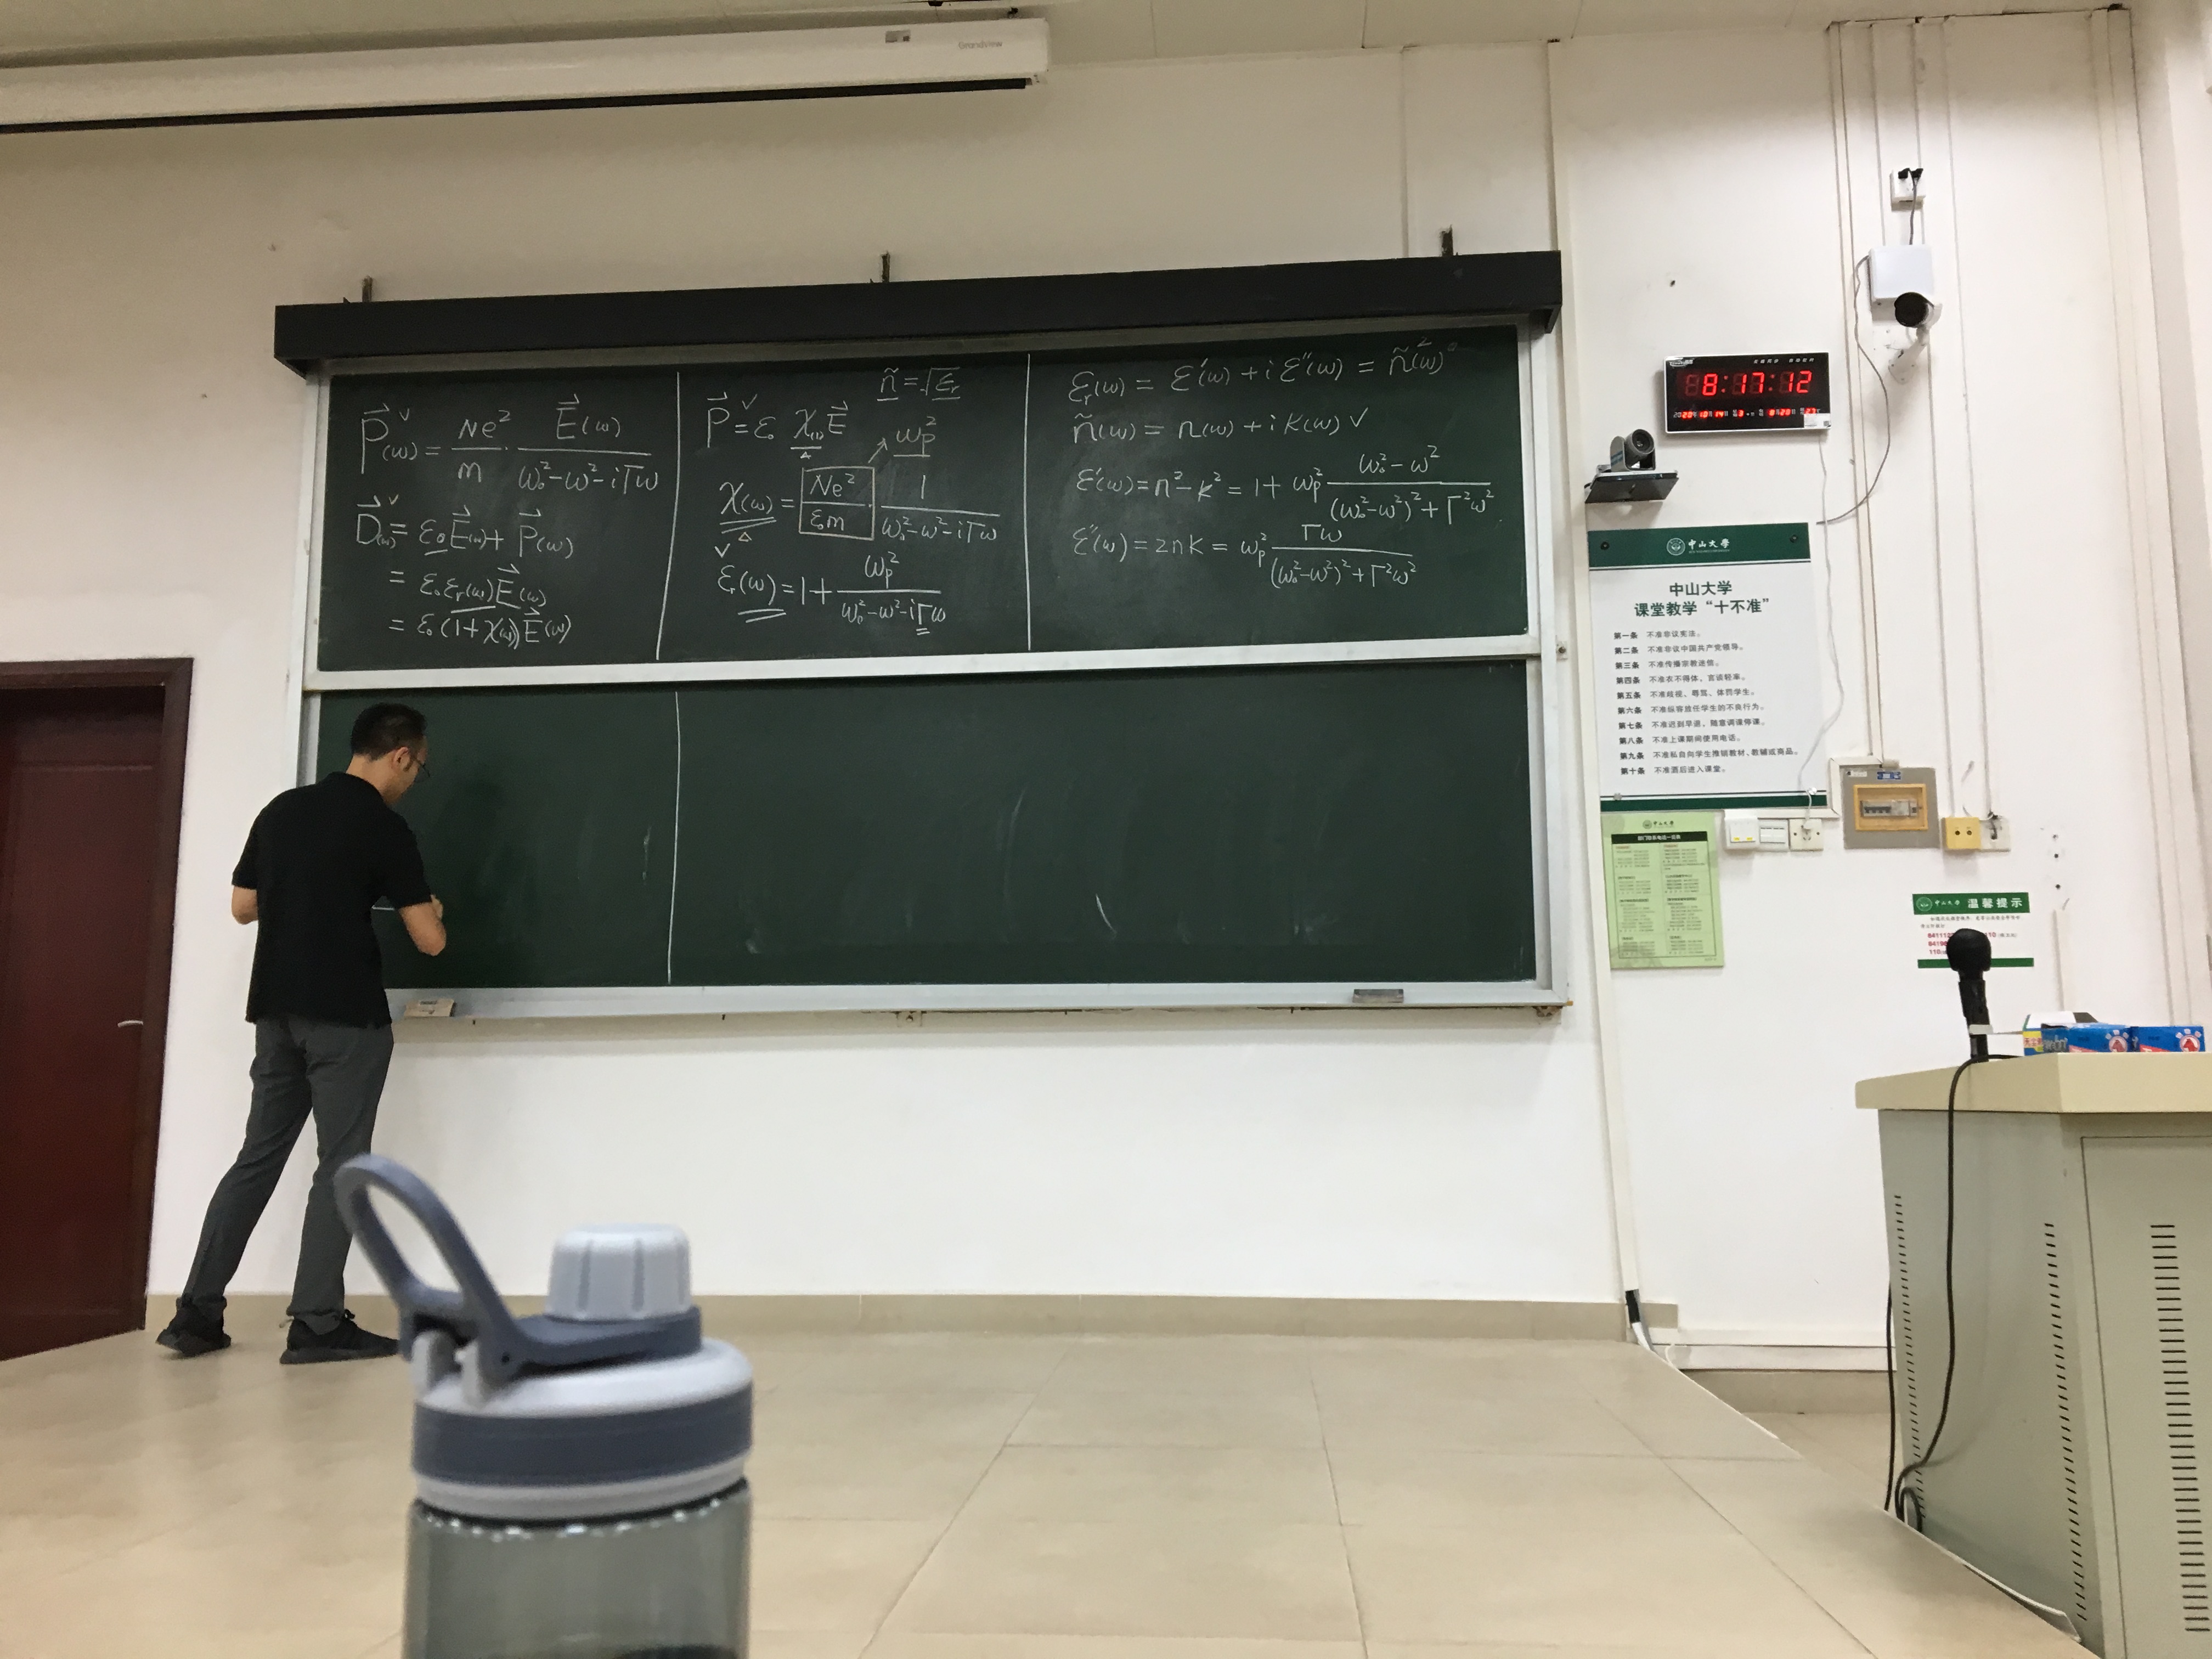 GrandView
P⃗(ω) = Ne²/m · E⃗(ω)/(ω₀²-ω²-iΓω)
D⃗(ω) = ε₀E⃗(ω) + P⃗(ω)
= ε₀εᵣ(ω)E⃗(ω)
= ε₀(1+χ(ω))E⃗(ω)
ñ = √εᵣ
P⃗ = ε₀ χ(ω)E⃗
ωp²
χ(ω) = Ne²/ε₀m · 1/(ω₀²-ω²-iΓω)
εᵣ(ω) = 1 + ωp²/(ω₀²-ω²-iΓω)
εᵣ(ω) = ε′(ω) + iε″(ω) = ñ²(ω)
ñ(ω) = n(ω) + iK(ω) ✓
ε′(ω) = n²-K² = 1 + ωp² (ω₀²-ω²)/((ω₀²-ω²)²+Γ²ω²)
ε″(ω) = 2nK = ωp² Γω/((ω₀²-ω²)²+Γ²ω²)
8:17:12
中山大学
中山大学
课堂教学“十不准”
第一条 不准非议宪法。
第二条 不准非议中国共产党领导。
第三条 不准传播宗教迷信。
第四条 不准衣不得体、言谈轻率。
第五条 不准歧视、辱骂、体罚学生。
第六条 不准纵容放任学生的不良行为。
第七条 不准迟到早退、随意调课停课。
第八条 不准上课期间使用电话。
第九条 不准私自向学生推销教材、教辅或商品。
第十条 不准酒后进入课堂。
中山大学
中山大学 温馨提示